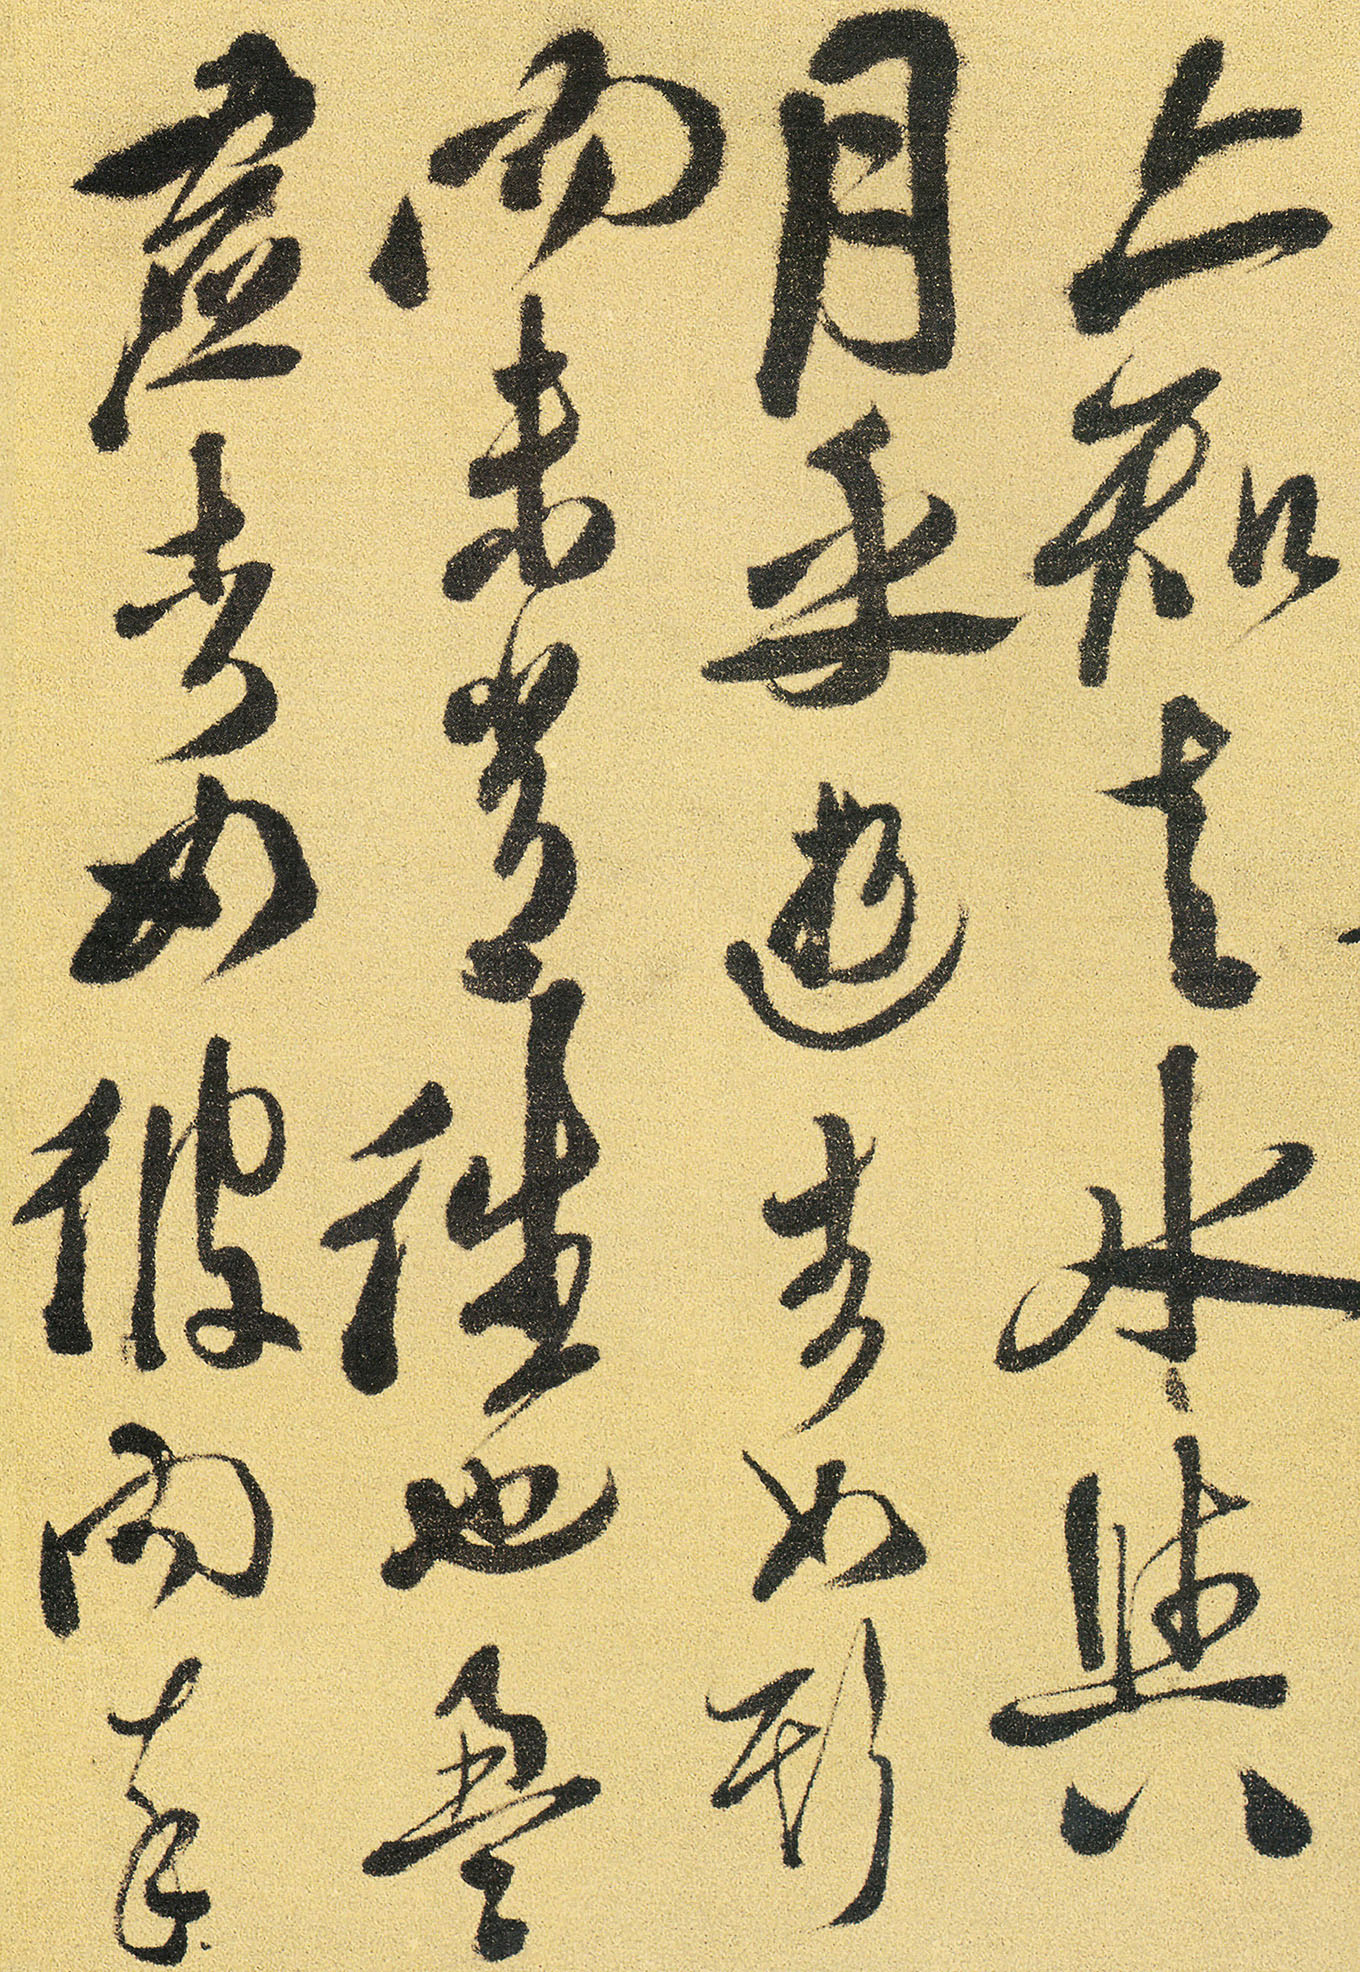 亦知夫水與
月乎逝者如斯
而未嘗往也盈
虛者如彼而卒